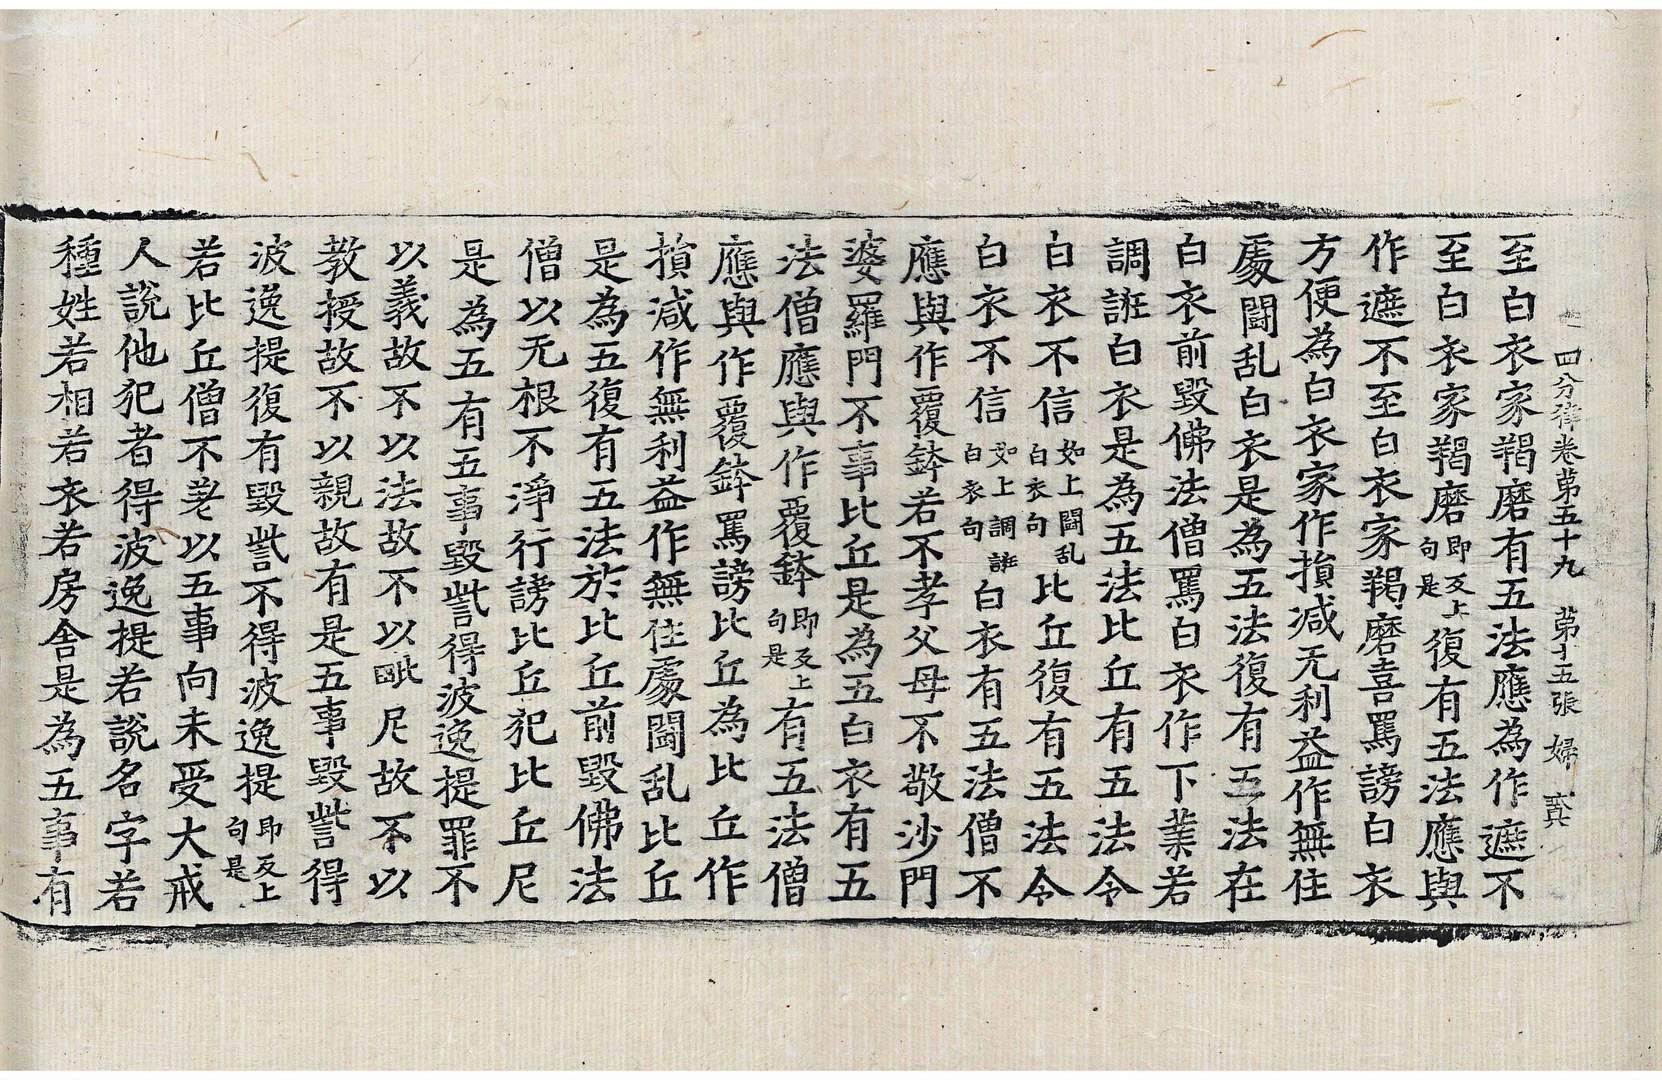 四分律卷第五十九　第十五張　婦
至白衣家羯磨有五法應為作遮不
至白衣家羯磨即反上句是復有五法應與
作遮不至白衣家羯磨喜罵謗白衣
方便為白衣家作損減无利益作無住
處鬪乱白衣是為五法復有五法在
白衣前毀佛法僧罵白衣作下業若
調誑白衣是為五法比丘有五法令
白衣不信如上鬪乱白衣句比丘復有五法令
白衣不信如上調誑白衣句白衣有五法僧不
應與作覆鉢若不孝父母不敬沙門
婆羅門不事比丘是為五白衣有五
法僧應與作覆鉢即反上句是有五法僧
應與作覆鉢罵謗比丘為比丘作
損減作無利益作無住處鬪乱比丘
是為五復有五法於比丘前毀佛法
僧以无根不淨行謗比丘犯比丘尼
是為五有五事毀呰得波逸提罪不
以義故不以法故不以毗尼故不以
教授故不以親故有是五事毀呰得
波逸提復有毀呰不得波逸提即反上句是
若比丘僧不差以五事向未受大戒
人說他犯者得波逸提若說名字若
種姓若相若衣若房舍是為五事有